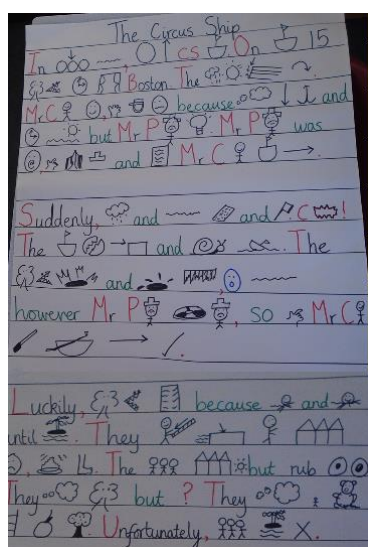 The Circus Ship
In , cs . On 15
Boston. The
Mr C , because and
but Mr P . Mr P was
, and Mr C .
Suddenly, and and C !
The and . The
and ,
however Mr P , so Mr C
.
Luckily, because and
until . They
, . The but rub
They but ? They
. Unfortunately, X.